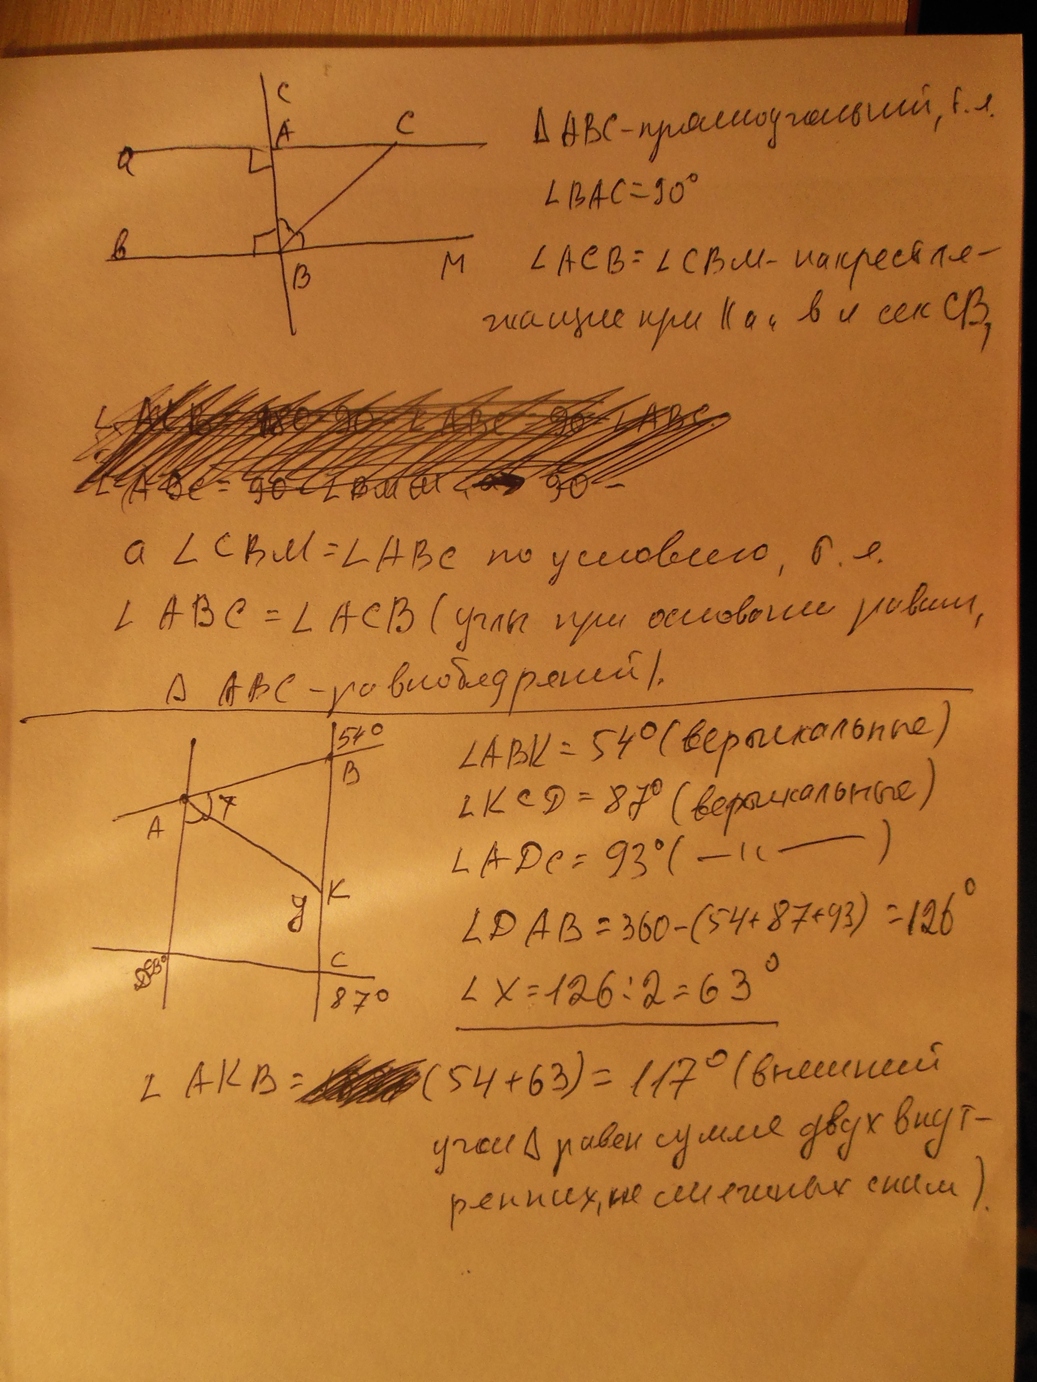 C
A
C
a
в
B
M
Δ ABC-прямоугольный, т.к.
∠BAC=90°
∠ACB=∠CBM- накрест ле-
жащие при || a и в и сек CB,
а ∠CBM=∠ABC по условию, т.е.
∠ABC=∠ACB (углы при основании равны,
Δ ABC-равнобедренный).
54°
B
A
x
K
y
D
93°
C
87°
∠ABK=54°(вертикальные)
∠KCD=87°(вертикальные)
∠ADC=93°(—"—)
∠DAB=360-(54+87+93)=126°
∠X=126:2=63°
∠AKB= (54+63)=117°(внешний
угол Δ равен сумме двух внут-
ренних, не смежных с ним).